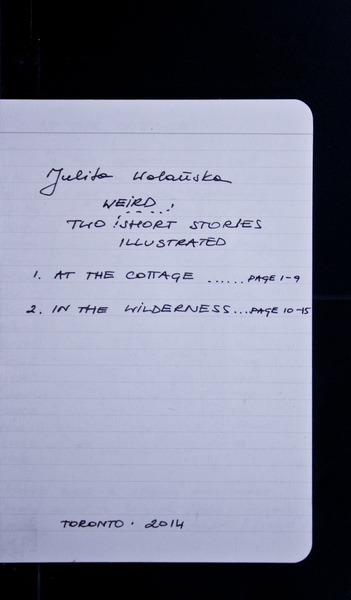 Julita Wolańska
WEIRD!
TWO SHORT STORIES
ILLUSTRATED
1. AT THE COTTAGE ...... PAGE 1-9
2. IN THE WILDERNESS... PAGE 10-15
TORONTO. 2014